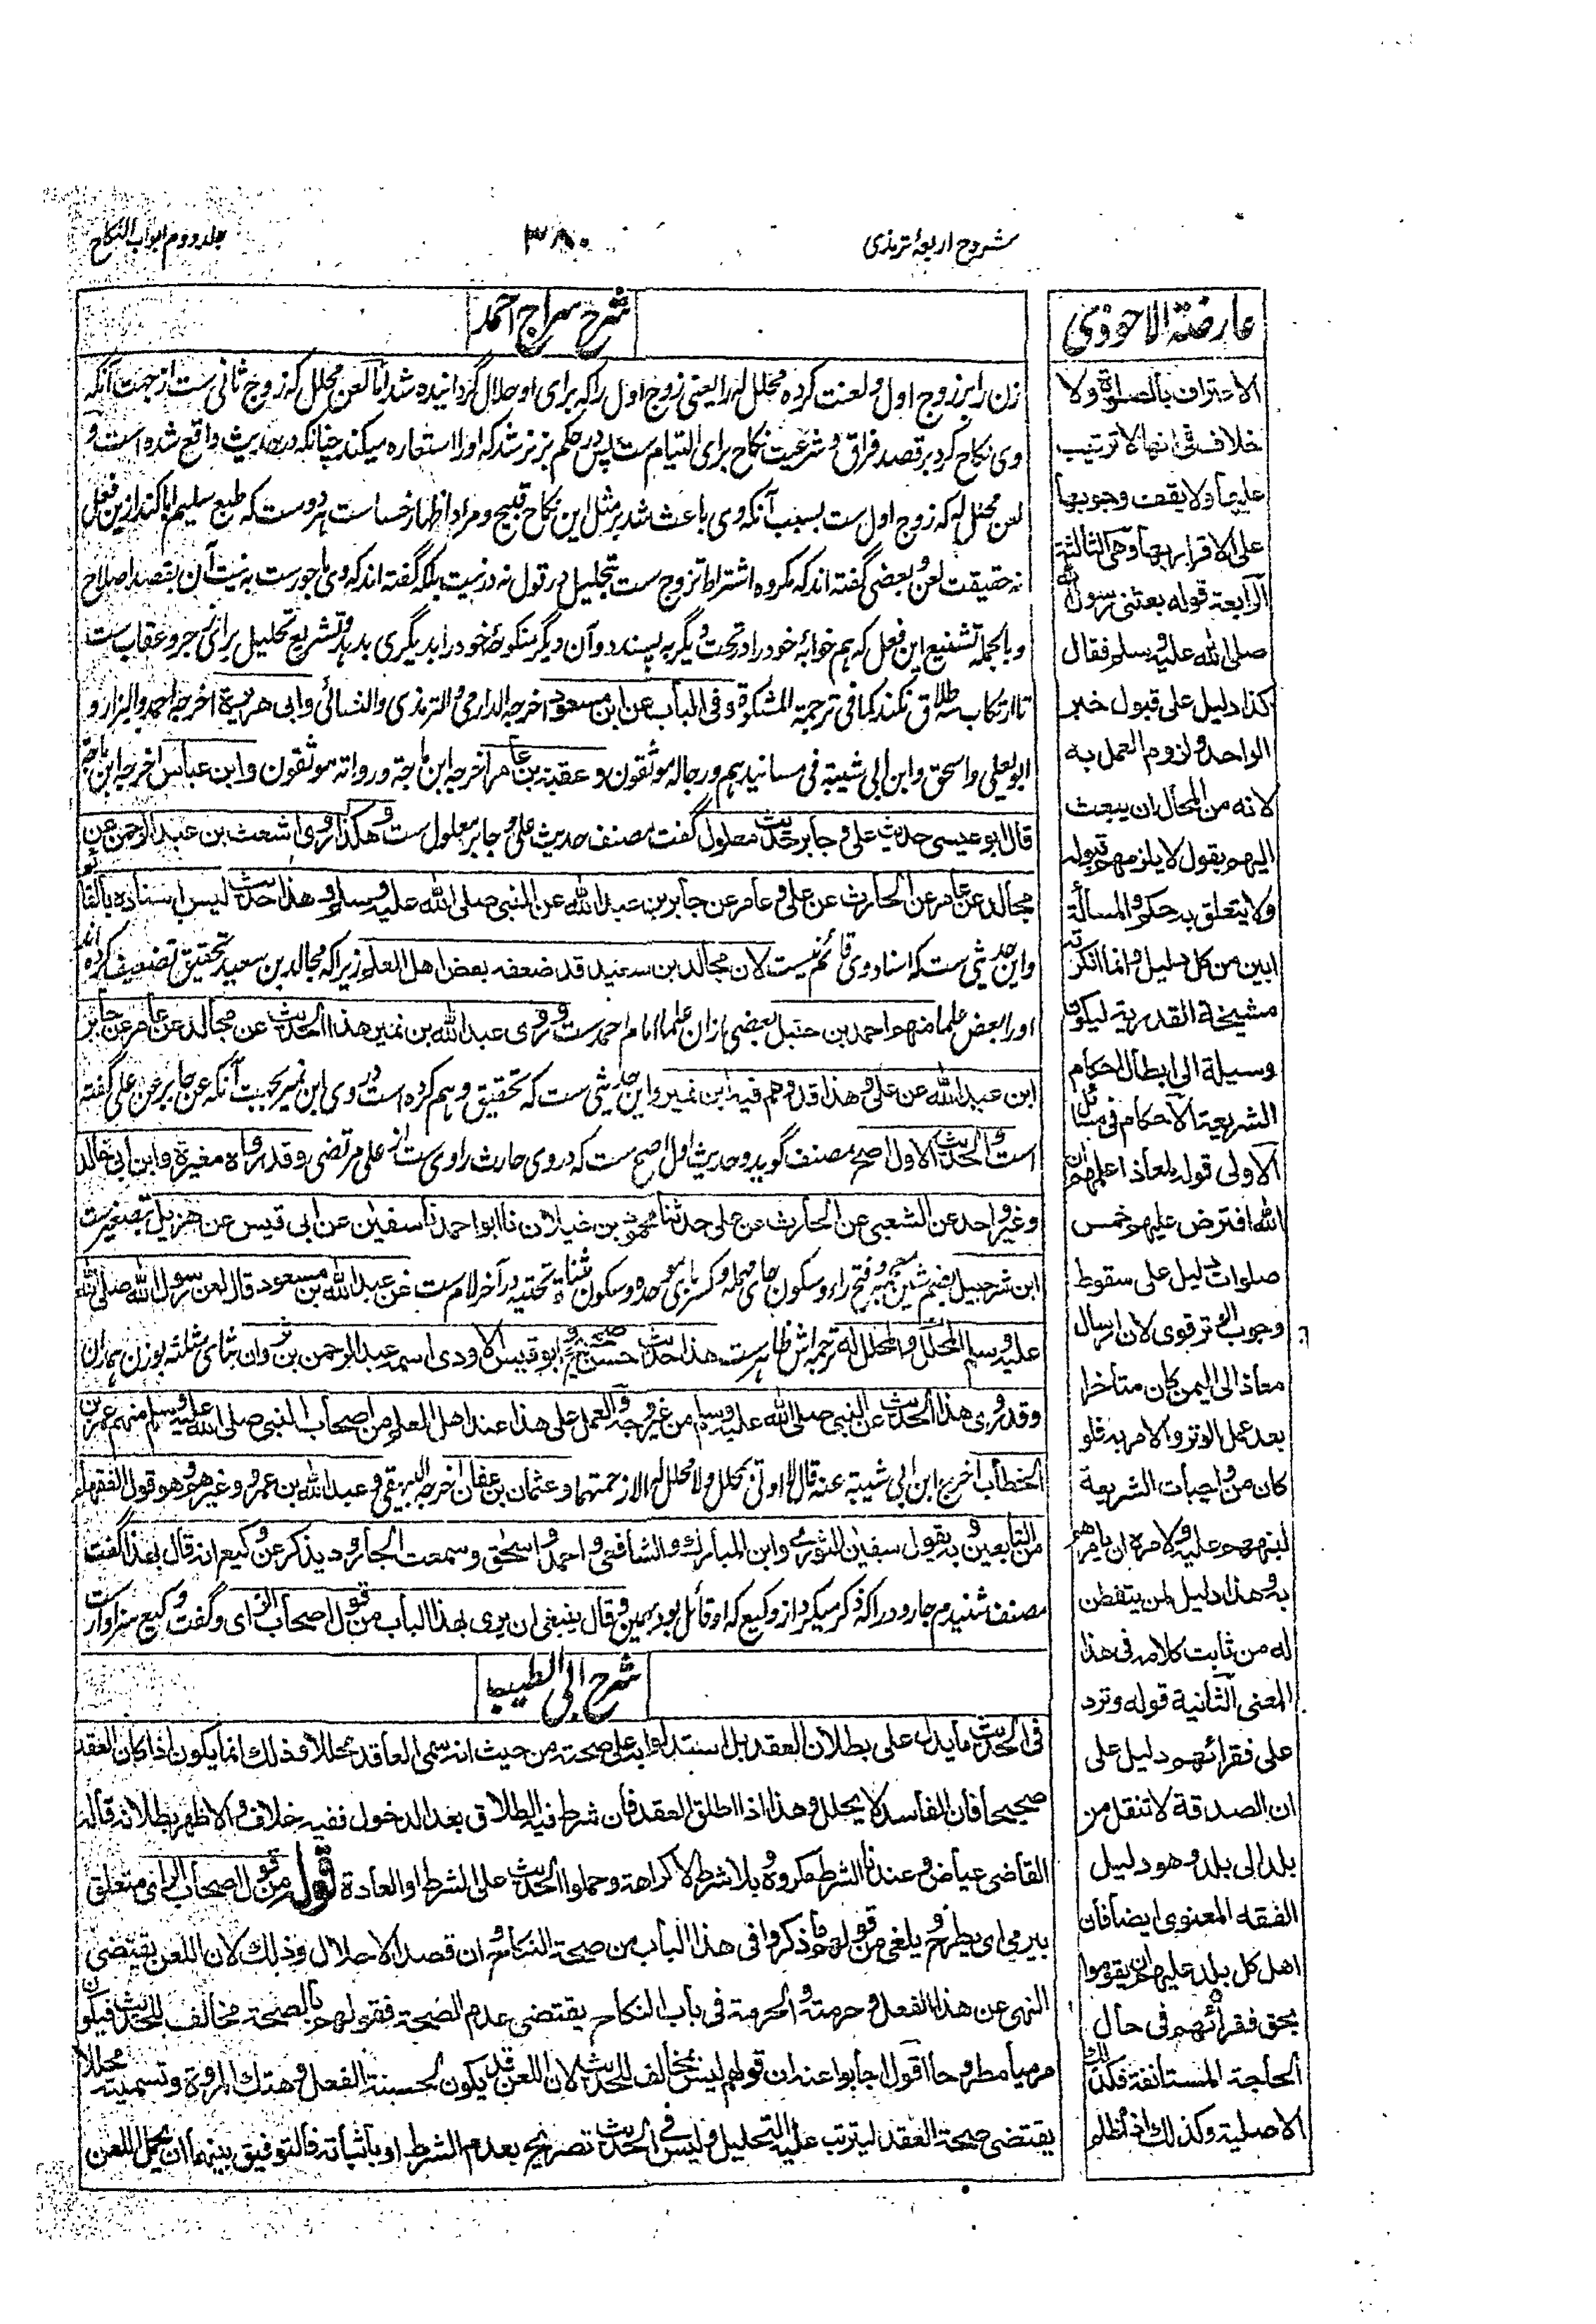 شروح اربعهٔ ترمذی
۳۸۰
جلد دوم ابواب النکاح
عارضة الاحوذی
الاعتراف بالصلوة ولا
خلاف فی انها لا ترتیب
علیها ولا یقف وجوبها
علی الاقرار بها وهی الثالثة
الرابعة قوله بعثنی رسول الله
صلی الله علیه وسلم فقال
کذا دلیل علی قبول خبر
الواحد ولزوم العمل به
لانه من المحال ان یبعث
الیهم بقول لا یلزمهم قبوله
ولا یتعلق به حکم والمسألة
ابین من کل دلیل وانما انکرته
مشیخة القدریة لیکون
وسیلة الی ابطال احکام
الشریعة الاحکام فی مسائل
الاولی قوله لمعاذ اعلمهم ان
الله افترض علیهم خمس
صلوات دلیل علی سقوط
وجوب الوتر قوی لان ارسال
معاذ الی الیمن کان متأخرا
بعد عمل الوتر والامر به فلو
کان من واجبات الشریعة
لبزمهم علیه ولامره ان یامرهم
به وهذا دلیل لمن یتفطن
له من ثابت کلامه فی هذا
المعنی الثانیة قوله وترد
علی فقرائهم دلیل علی
ان الصدقة لا تنقل من
بلد الی بلد وهو دلیل
الفقه المعنوی ایضا فان
اهل کل بلد علیهم ان یقوموا
بحق فقرائهم فی حال
الحاجة المستانفة فکذلک
الاصلیة وکذلک اذا ظلم
شرح سراج احمد
زن را بر زوج اول و لعنت کرده محلل له را یعنی زوج اول را که برای او حلال گردانیده شد اما لعن محلل که زوج ثانی ست از جهت آنکه
وی نکاح کرد بر قصد فراق و شرعیت نکاح برای التیام ست پس در حکم بز نر شد که او را استعاره میکند چنانکه در حدیث واقع شده است و
لعن محلل له که زوج اول ست بسبب آنکه وی باعث شد بر مثل این نکاح قبیح و مراد اظهار خساست هر دو ست که طبع سلیم ابا کند ازین فعل
نه حقیقت لعن و بعضی گفته اند که مکروه اشتراط تزوج ست بتحلیل در قول نه در نیت بلکه گفته اند که وی ماجور ست به نیت آن بقصد اصلاح
و بالجمله تشنیع این فعل که هم خوابهٔ خود را در تحت دیگر به پسندد و آن دیگر منکوحهٔ خود را بدیگری بدهد و تشریع تحلیل برای زجر و عقاب ست
تا ارتکاب سه طلاق نکند کما فی ترجمة المشکوة وفی الباب عن ابن مسعود اخرجه الدارمی والترمذی والنسائی وابی هریرة اخرجه احمد والبزار و
ابو یعلی واسحق وابن ابی شیبة فی مسانیدهم ورجاله موثقون وعقبة بن عامر اخرجه ابن ماجة ورواته موثقون وابن عباس اخرجه ابن ماجة
قال ابو عیسی حدیث علی وجابر حدیث معلول گفت مصنف حدیث علی و جابر معلول ست وهکذا روی اشعث بن عبد الرحمن عن
مجالد عن عامر عن الحارث عن علی وعامر عن جابر بن عبد الله عن النبی صلی الله علیه وسلم وهذا حدیث لیس اسناده بالقائم
و این حدیثی ست که اسناد وی قائم نیست لان مجالد بن سعید قد ضعفه بعض اهل العلم زیرا که مجالد بن سعید تحقیق تضعیف کرده اند
او را بعض علما منهم احمد بن حنبل بعضی از ان علما امام احمد ست وروی عبد الله بن نمیر هذا الحدیث عن مجالد عن عامر عن جابر
ابن عبد الله عن علی وهذا قد وهم فیه ابن نمیر و این حدیثی ست که تحقیق وهم کرده است در وی ابن نمیر بجهت آنکه عن جابر عن علی گفته
است والحدیث الاول اصح مصنف گوید و حدیث اول اصح ست که در وی حارث راوی ست از علی مرتضی وقد رواه مغیرة وابن ابی خالد
وغیر واحد عن الشعبی عن الحارث عن علی حدثنا محمود بن غیلان نا ابو احمد نا سفین عن ابی قیس عن هزیل بتصغیر ست
ابن شرحبیل بضم شین معجمه و فتح راء و سکون حای مهمله و کسر بای موحده و سکون مثناة تحتیه در آخر لام ست عن عبد الله بن مسعود قال لعن رسول الله صلی الله
علیه وسلم المحلل والمحلل له ترجمه اش ظاهر ست هذا حدیث حسن صحیح وابو قیس الاودی اسمه عبد الرحمن بن ثروان بثای مثلثه بوزن همدان
وقد روی هذا الحدیث عن النبی صلی الله علیه وسلم من غیر وجه والعمل علی هذا عند اهل العلم من اصحاب النبی صلی الله علیه وسلم منهم عمر بن
الخطاب اخرج ابن ابی شیبة عنه قال لا اوتی بمحلل ولا محلل له الا رجمتهما وعثمان بن عفان اخرجه البیهقی وعبد الله بن عمرو وغیرهم وهو قول الفقهاء
من التابعین وبه یقول سفین الثوری وابن المبارک والشافعی واحمد واسحق وسمعت الجارود یذکر عن وکیع انه قال بهذا گفت
مصنف شنیدم جارود را که ذکر میکرد از وکیع که او قائل بود بهمین وقال ینبغی ان یرمی بهذا الباب من قول اصحاب الرای و گفت وکیع سزاوار ست
شرح ابی الطیب
فی الحدیث ما یدل علی بطلان العقد بل استدلوا به علی صحته من حیث انه سمی العاقد محللا وذلک انما یکون اذا کان العقد
صحیحا فان الفاسد لا یحلل وهذا اذا اطلق العقد فان شرط فیه الطلاق بعد الدخول ففیه خلاف والاظهر بطلانه قاله
القاضی عیاض وعندنا الشرط مکروه وبلا شرط لا کراهة وحملوا الحدیث علی الشرط او العادة قوله من قول اصحاب الرای متعلق
بیرمی ای یطرح ویلغی من قولهم ما ذکروا فی هذا الباب من صحة النکاح وان قصد الاحلال وذلک لان اللعن یقتضی
النهی عن هذا الفعل وحرمته والحرمة فی باب النکاح یقتضی عدم الصحة فقولهم بالصحة مخالف للحدیث فیکون
مرمیا مطروحا اقول اجابوا عنه ان قولهم لیس بمخالف للحدیث لان اللعن قد یکون لخسة الفعل وهتک المروة وتسمیته محللا
یقتضی صحة العقد لیترتب علیه التحلیل ولیس فی الحدیث تصریح بعدم الشرط او باثباته فالتوفیق بینهما ان یحمل اللعن